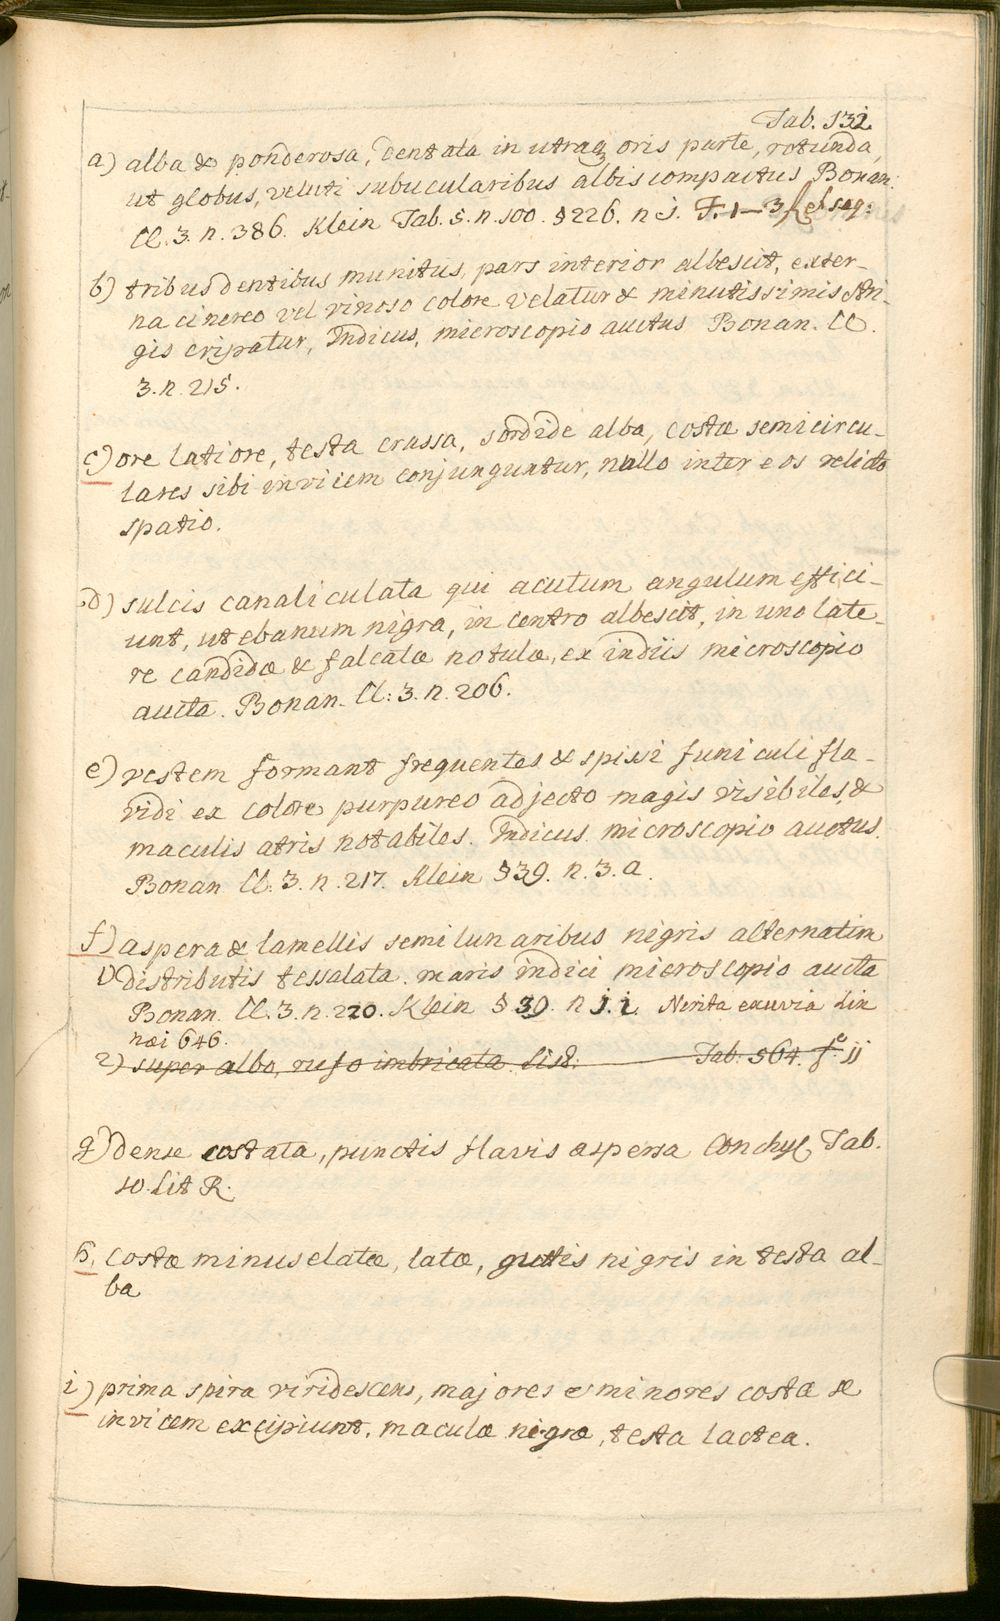 Tab. 132
a) alba & ponderosa, dentata in utraq oris parte, rotunda,
ut globus, veluti subucularibus albis compactus Bonan:
Cl. 3. n. 386. Klein Tab. 5. n. 100. §226. n 1. F. 1–3 et seq:
b) tribus dentibus munitus, pars interior albescit, exter-
na cinereo vel vinoso colore velatur & minutissimis stri-
gis cripatur, Indicus, microscopio auctus Bonan. Cl.
3. n. 215.
c) ore latiore, testa crassa, sordide alba, costæ semicircu-
lares sibi invicem conjunguntur, nullo inter eos relicto
spatio.
d) sulcis canaliculata qui acutum angulum effici-
unt, ut ebanum nigra, in centro albescit, in uno late-
re candidæ & falcatæ notulæ, ex indiis microscopio
aucta. Bonan. Cl: 3. n. 206.
e) vestem formant frequentes & spissi funiculi fla-
vidi ex colore purpureo adjecto magis visibiles, &
maculis atris notabiles. Indicus microscopio auctus.
Bonan Cl. 3. n. 217. Klein §39. n. 3. a.
f) aspera & lamellis semilunaribus nigris alternatim
1) distributis tessalata. maris indici microscopio aucta
Bonan. Cl. 3. n. 220. Klein §39. n 1. i. Nerita exuvia Lin
næi 646.
2) super albo, rufo imbricata List: Tab. 564. f. 11
g) dense costata, punctis flavis aspersa Conchyl. Tab.
10. Lit R.
h. costæ minus elatæ, latæ, guttis nigris in testa al-
ba
i) prima spira viridescens, majores & minores costæ se
invicem excipiunt, maculæ nigræ, testa lactea.